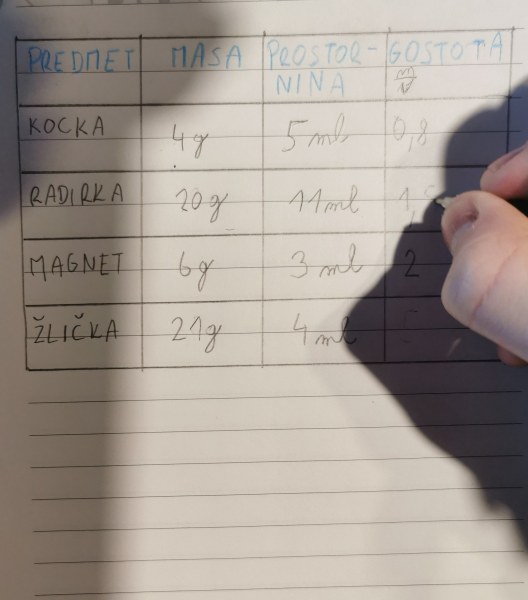 PREDMET MASA PROSTOR- GOSTOTA
NINA m/V
KOCKA 4g 5 ml 0,8
RADIRKA 20g 11 ml 1,
MAGNET 6g 3 ml 2
ŽLIČKA 21g 4 ml